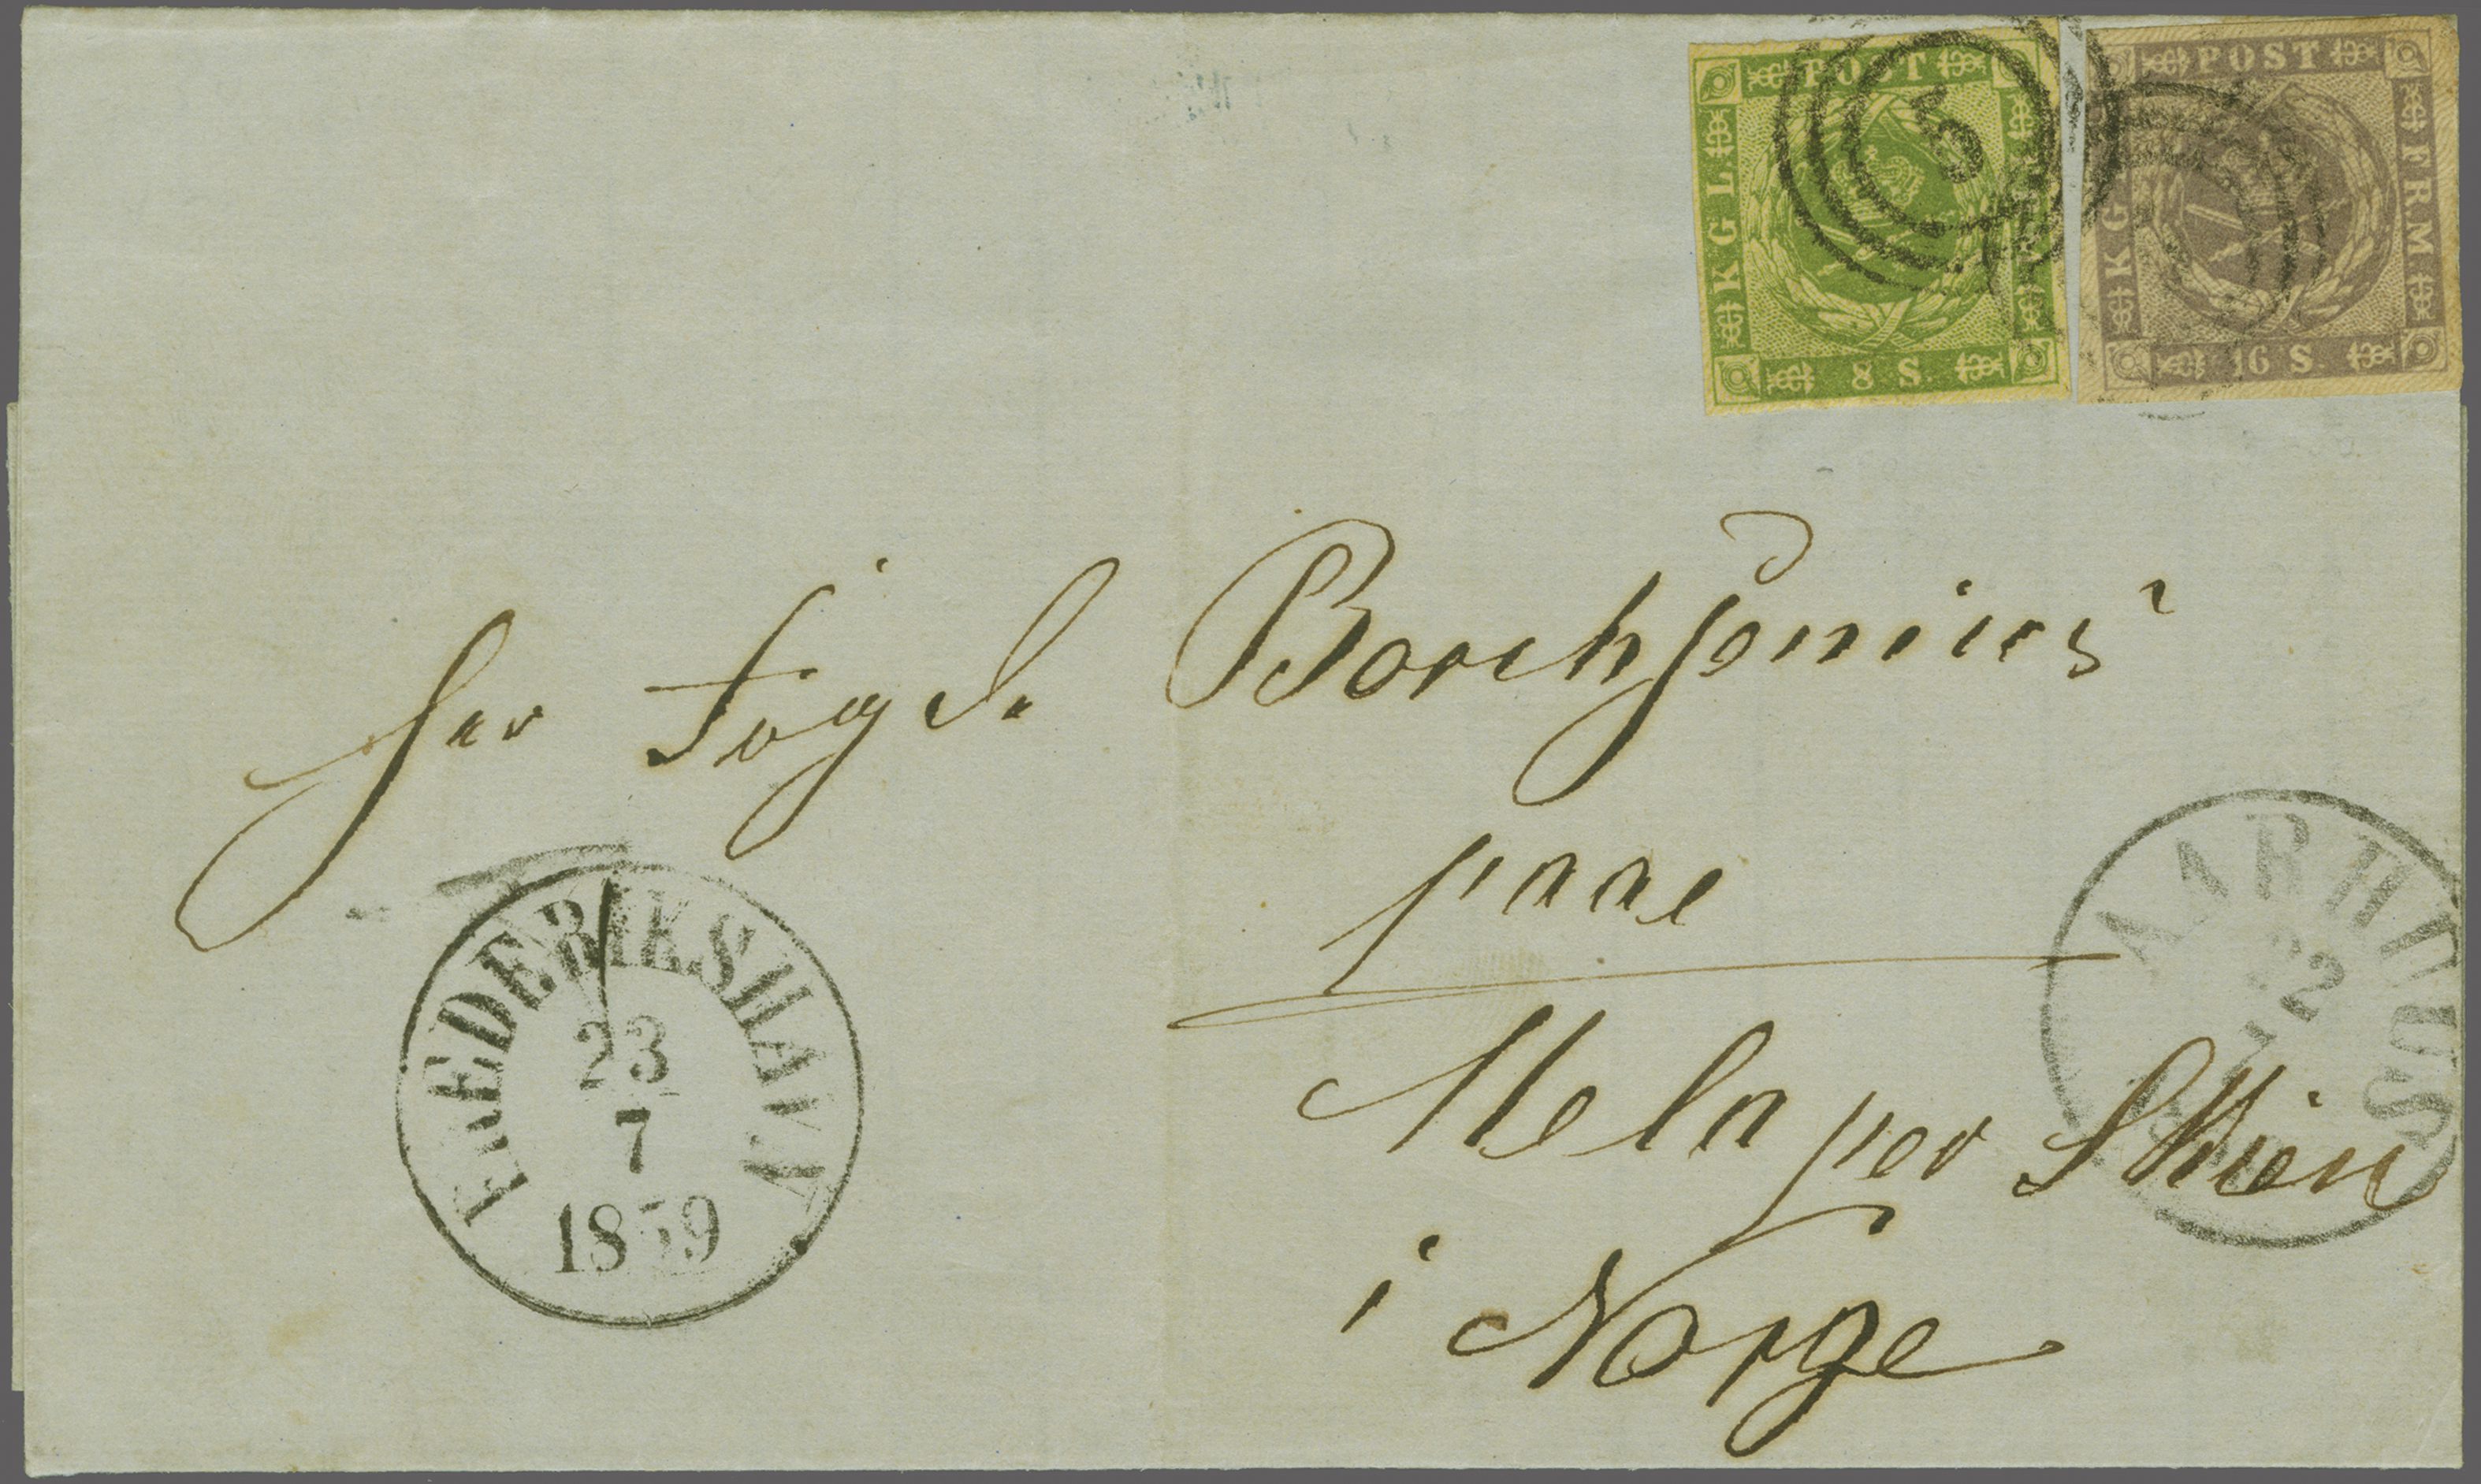 POST
KGL
FRM
8 S.
5
POST
KG
FRM
16 S.
Her Foged. Borchsenius
paae
Mela per Skien
i Norge
FREDERIKSHAVN
23
7
1859
AARHUUS
22
7